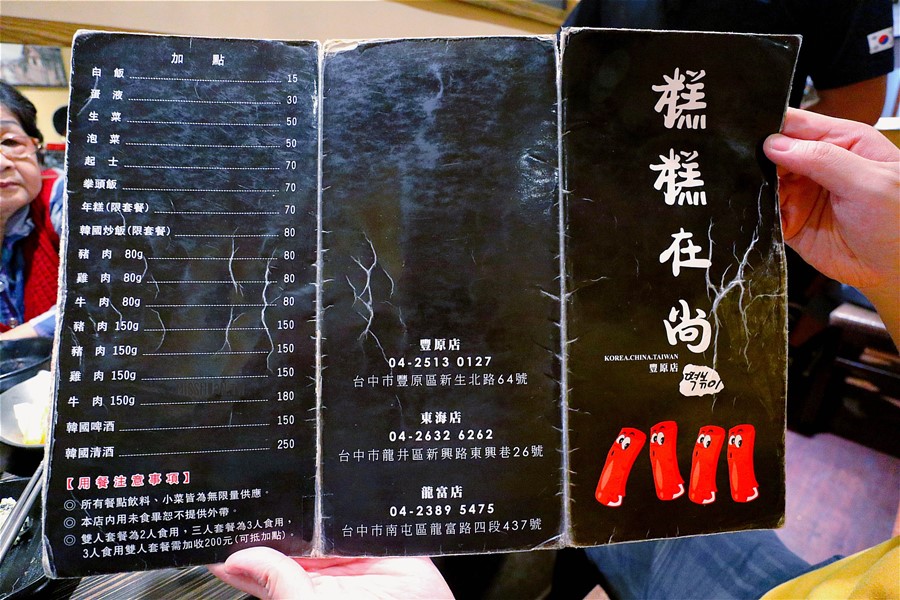 加 點
白 飯 15
蛋 液 30
生 菜 50
泡 菜 50
起 士 70
拳頭飯 70
年糕(限套餐) 70
韓國炒飯(限套餐) 80
豬 肉 80g 80
雞 肉 80g 80
牛 肉 80g 80
豬 肉 150g 150
豬 肉 150g 150
雞 肉 150g 150
牛 肉 150g 180
韓國啤酒 150
韓國清酒 250
【用餐注意事項】
◎ 所有餐點飲料、小菜皆為無限量供應。
◎ 本店內用未食畢恕不提供外帶。
◎ 雙人套餐為2人食用，三人套餐為3人食用，
3人食用雙人套餐需加收200元(可抵加點)。
豐原店
04-2513 0127
台中市豐原區新生北路64號
東海店
04-2632 6262
台中市龍井區新興路東興巷26號
龍富店
04-2389 5475
台中市南屯區龍富路四段437號
糕
糕
在
尚
KOREA.CHINA.TAIWAN
豐原店
떡볶이